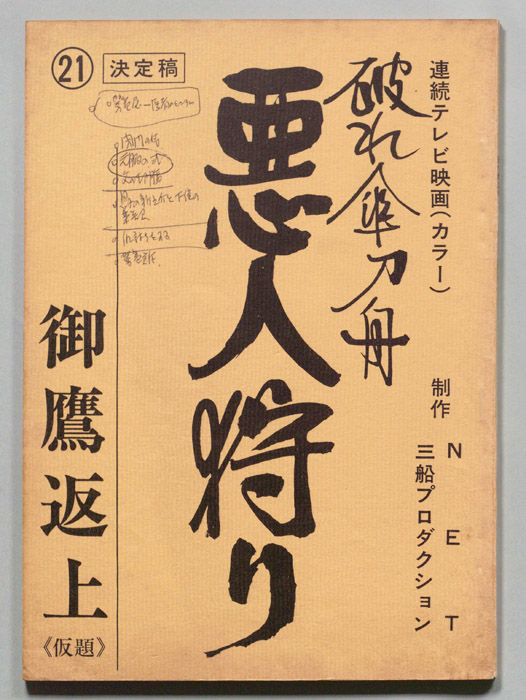 連続テレビ映画(カラー)
制作 NET
三船プロダクション
破れ傘刀舟
悪人狩り
㉑
決定稿
御鷹返上
《仮題》